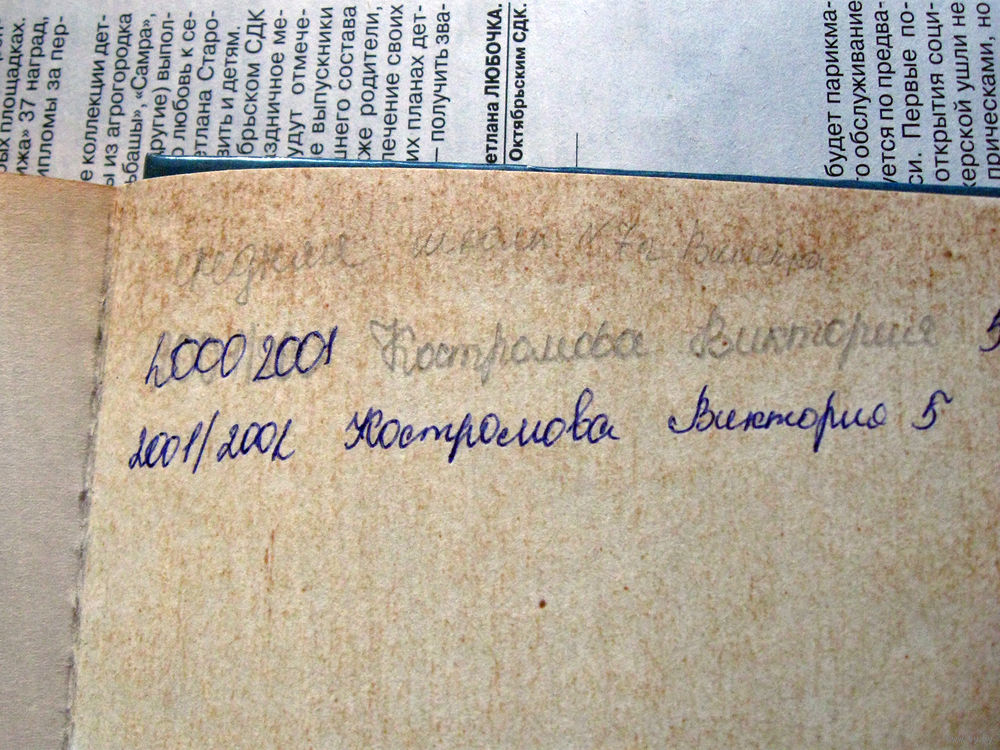 ых площадках.
ижа» 37 наград,
ипломы за пер-
е коллекции дет-
ы из агрогородка
ьбашы», «Самра»,
ругие) выпол-
любовь к се-
етлана Старо-
вить и детям.
брьском СДК
аздничное ме-
удут отмече-
е выпускники
шнего состава
же родители,
лечение своих
их планах дет-
— получить зва-
етлана ЛЮБОЧКА.
Октябрьским СДК.
будет парикма-
о обслуживание
уется по предва-
си. Первые по-
открытия соци-
херской ушли не
прическами, но
средняя школа №7
2000 2001 Костромова Виктория 5
2001/2002 Костромова Виктория 5